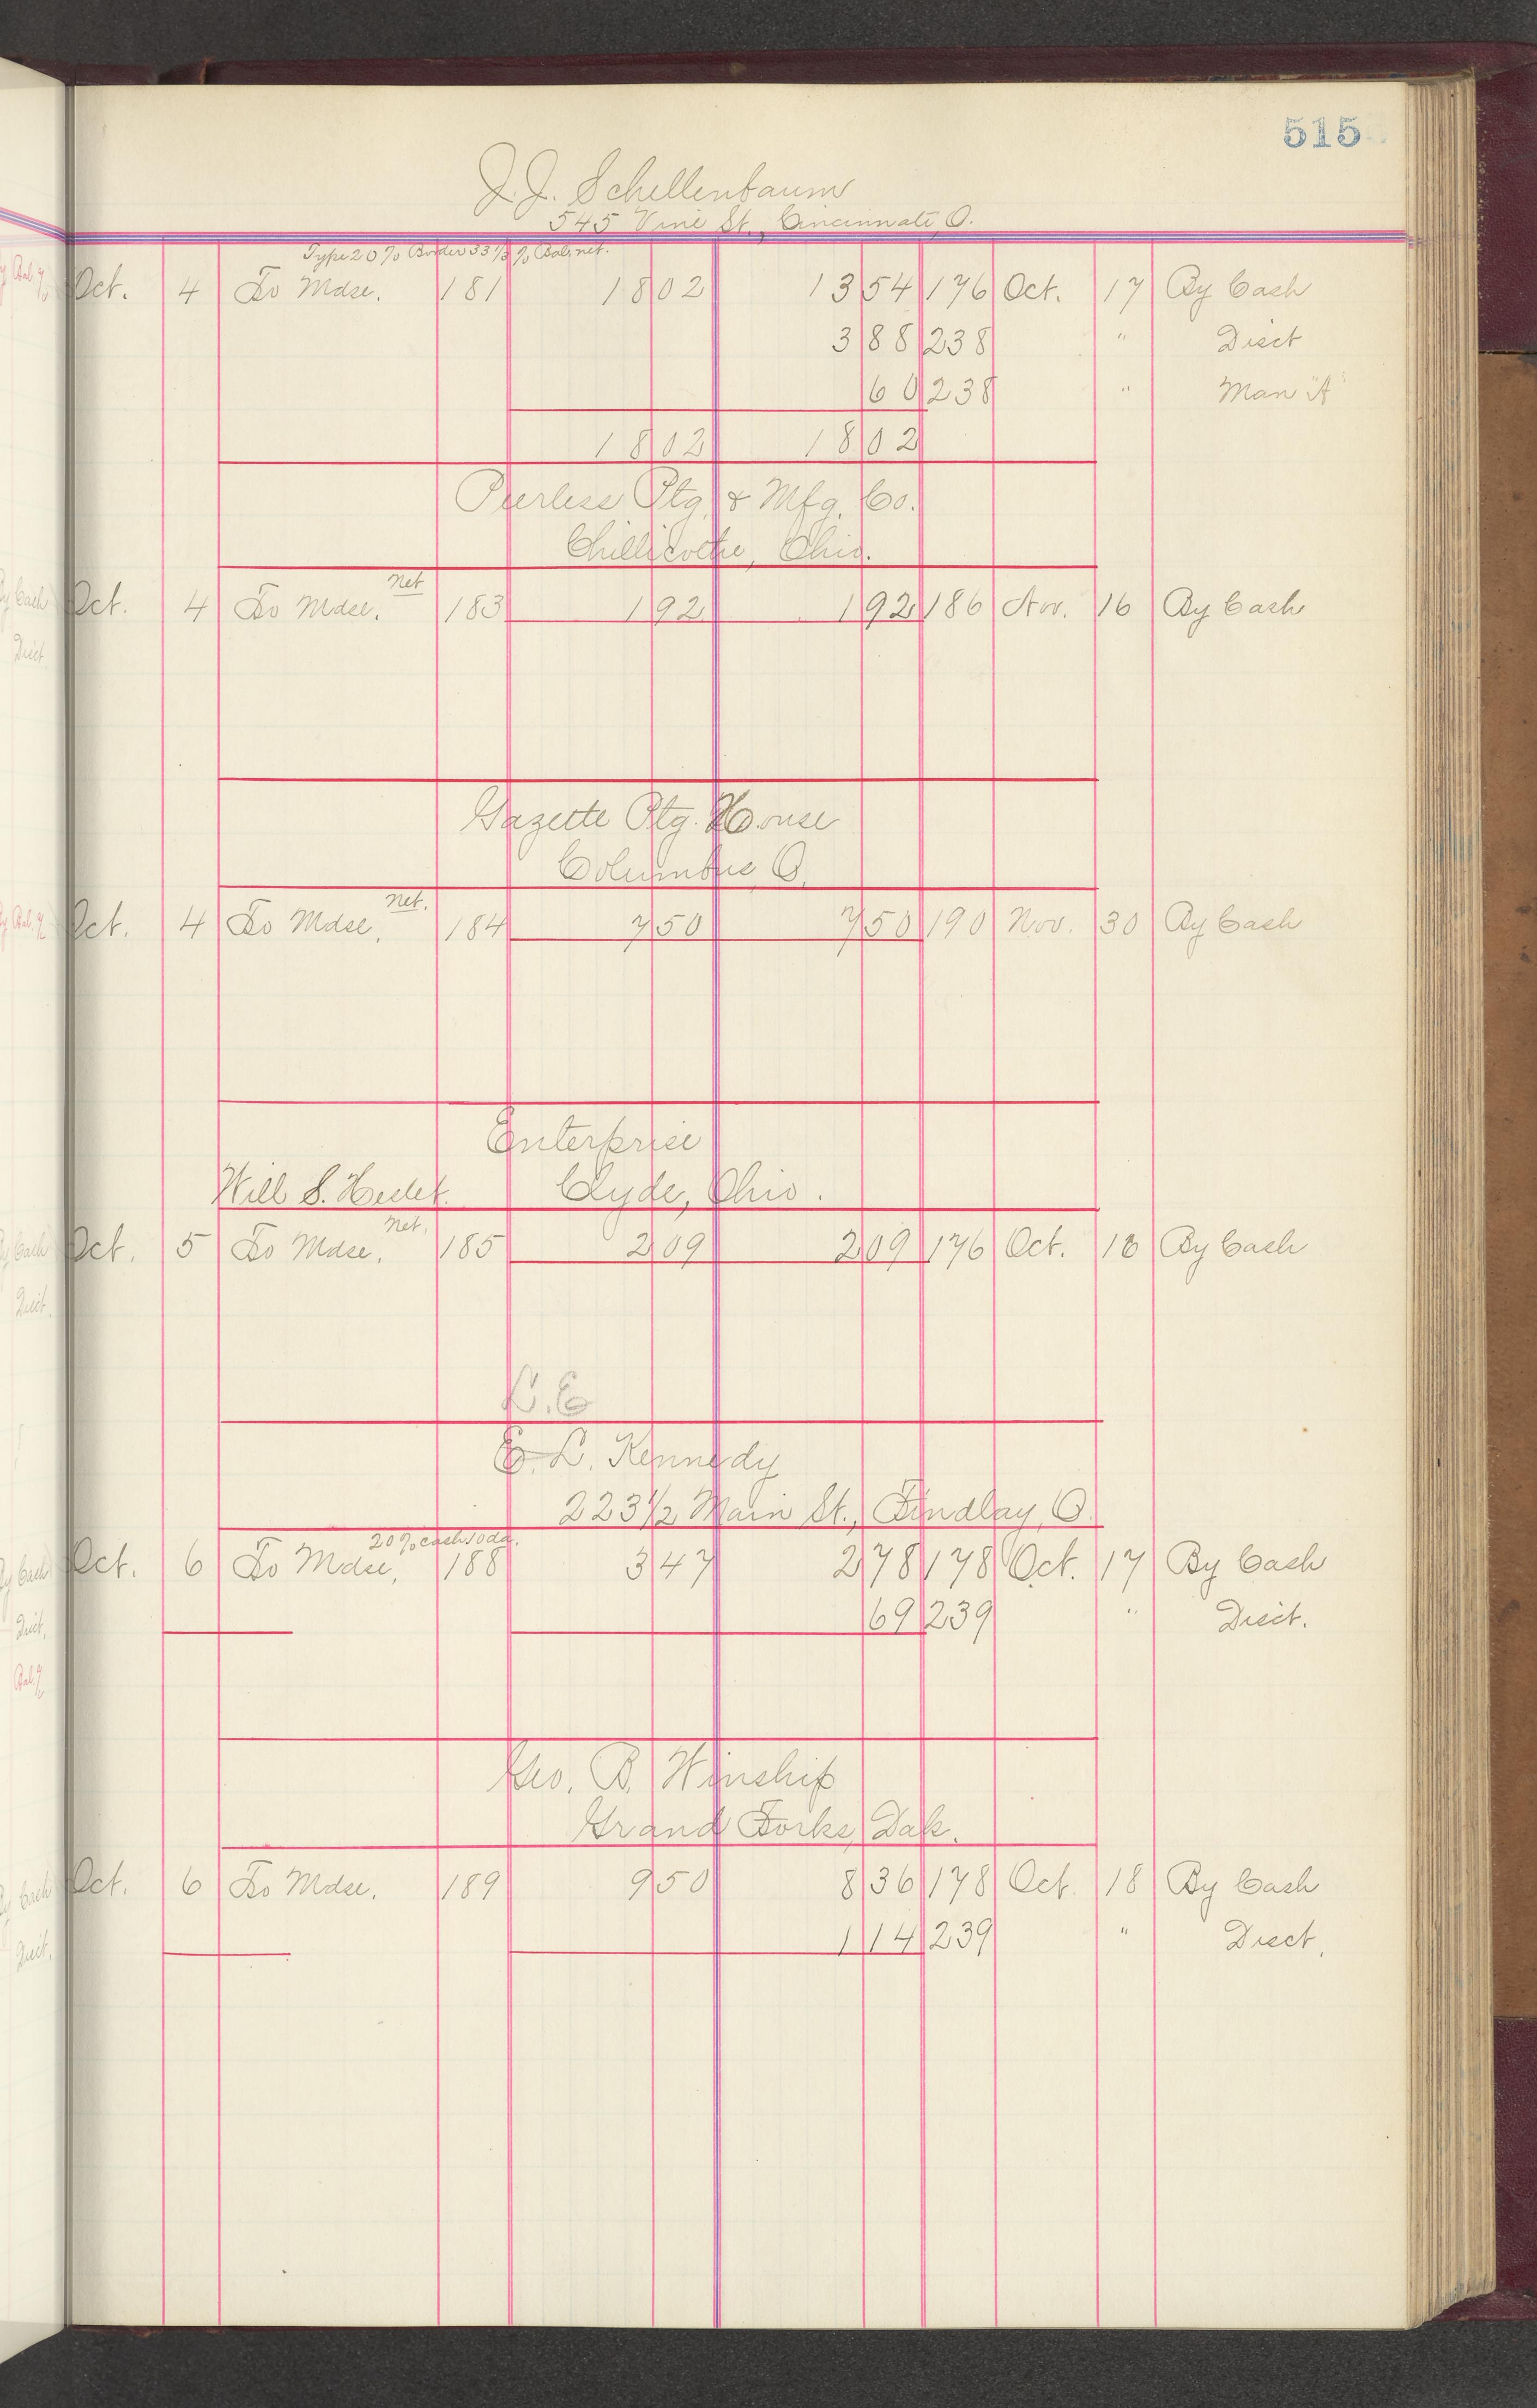 515
J. J. Schellenbaum
545 Vine St., Cincinnati, O.
Type 20% Border 33 1/3 % Bal. net.
Oct. 4 To Mdse. 181 18 02 13 54 176 Oct. 17 By Cash
3 88 238 " Disct
60 238 " Man "A"
18 02 18 02
Peerless Ptg. & Mfg. Co.
Chillicothe, Ohio.
Net
Oct. 4 To Mdse. 183 1 92 1 92 186 Nov. 16 By Cash
Gazette Ptg. House
Columbus, O.
Net.
Oct. 4 To Mdse. 184 7 50 7 50 190 Nov. 30 By Cash
Enterprise
Will S. Clyde, Ohio.
Net.
Oct. 5 To Mdse. 185 2 09 2 09 176 Oct. By Cash
L. E
E. L. Kennedy
223 1/2 Main St., Findlay, O.
20% cash 10 da.
Oct. 6 To Mdse. 188 3 47 2 78 178 Oct. 17 By Cash
69 239 " Disct.
Geo. B. Winship
Grand Forks, Dak.
Oct. 6 To Mdse. 189 9 50 8 36 178 Oct. 18 By Cash
1 14 239 " Disct.